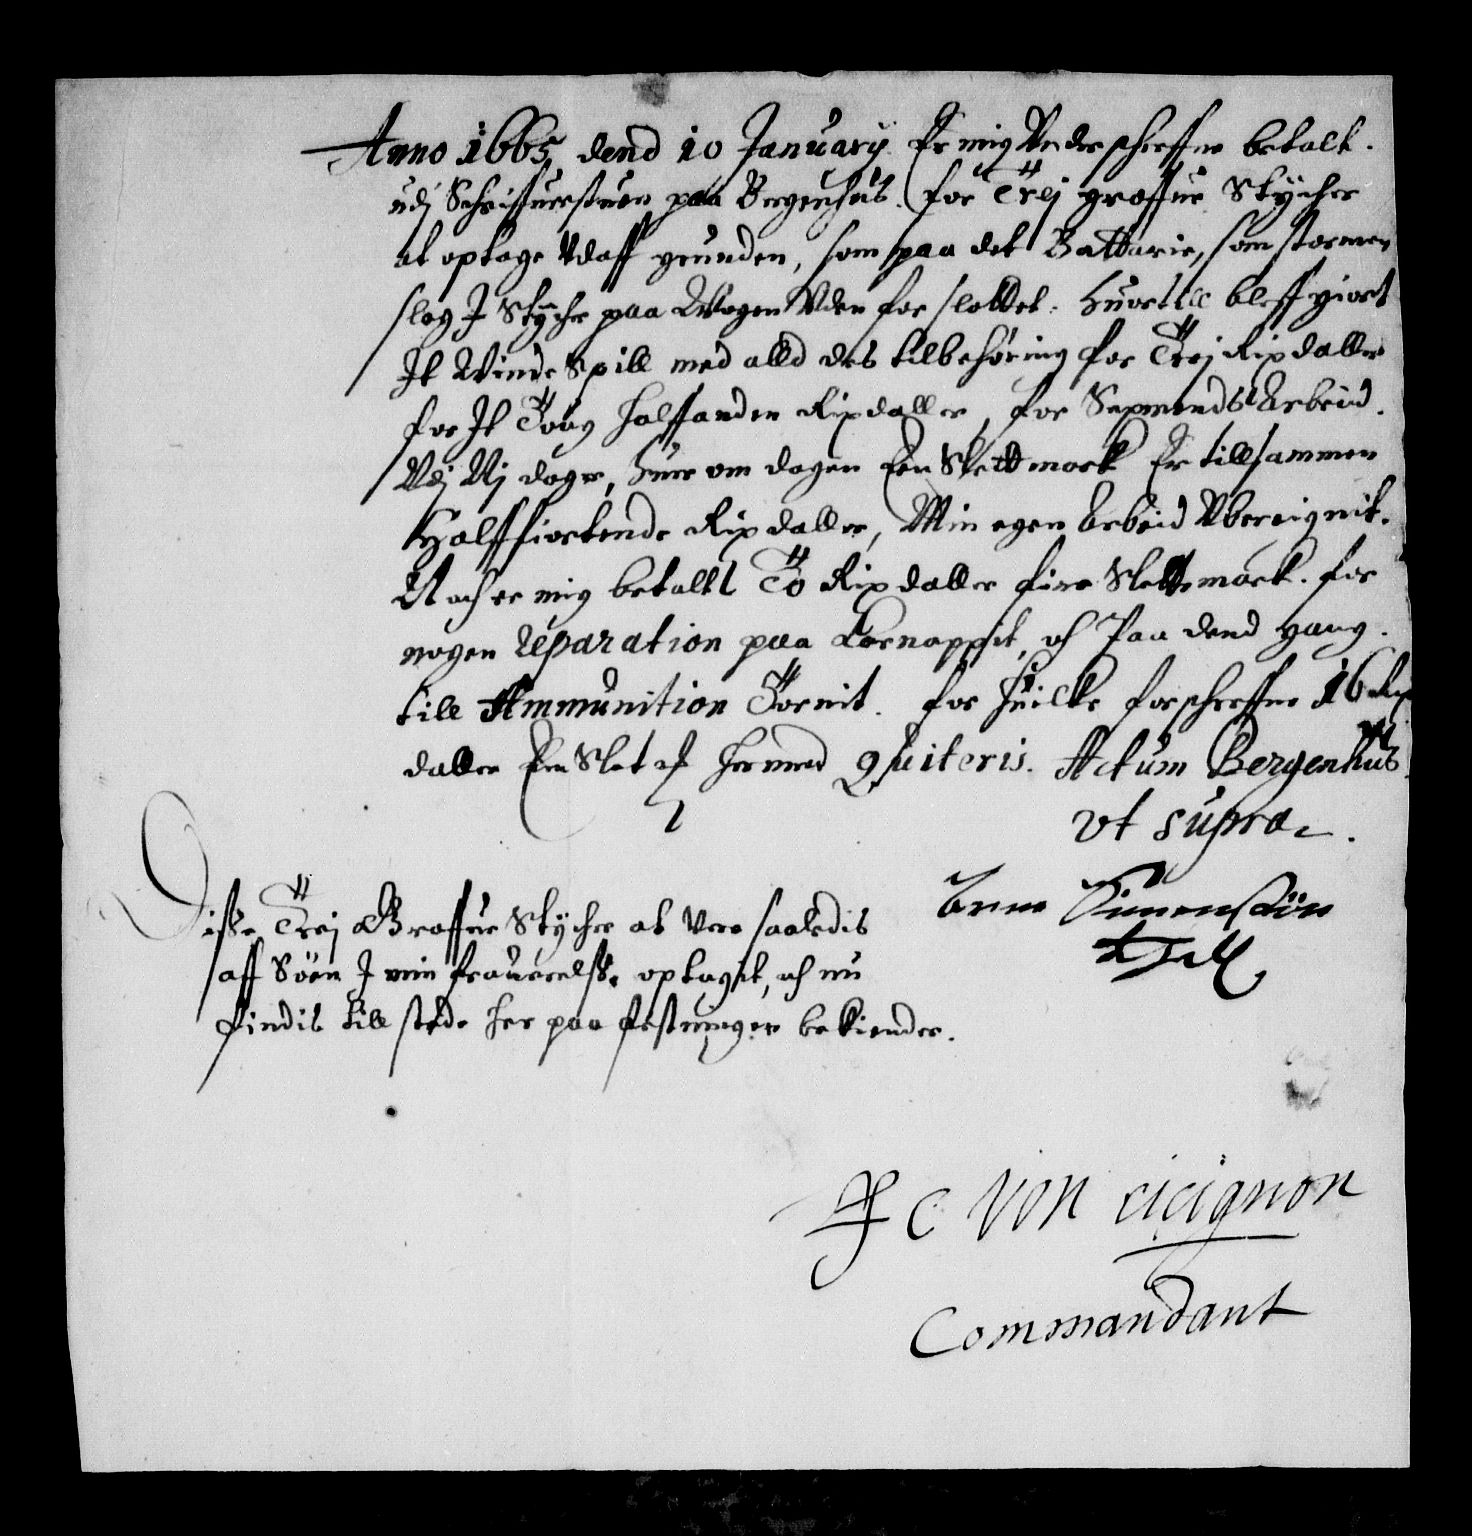 Anno 1665 dend 10 January Er mig Underschreffne betalt.
udj Schriffuerstuen paa Bergenhus. for Trej groffue Stycher
at optage Udaff grunden, som paa det Battarie, som stormen
slog I Stycher paa Wogen Uden for slottet. Huortill bleff giort
It Winde Spill med alld des tilbehøring for Trej Rixdaller
for It Toug halffanden Rixdaller, for Sexmends Arbeid.
Udj Uj dage, huer om dagen Een Slettmark Er tillsammen
Halfffiortende Rixdaller, Min egen Arbeid Ubereignit.
Noch er mig betallt To Rixdaller fire Slettemark. for
nogen Reparation paa Kornappit, och Paa dend gang
till Ammunition Tornit. for huilke forschreffne 16 Rix
daller Een Slet mk hermed Quiteris. Actum Bergenhus
vt supra.
Arne Simensøn
Disse Trej Groffue Stycher at Vere saaledis
aff Søen I min frauerelsse optagit, och nu
findis till stede her paa festningen bekiender.
JC Von Cicignon
Commandant